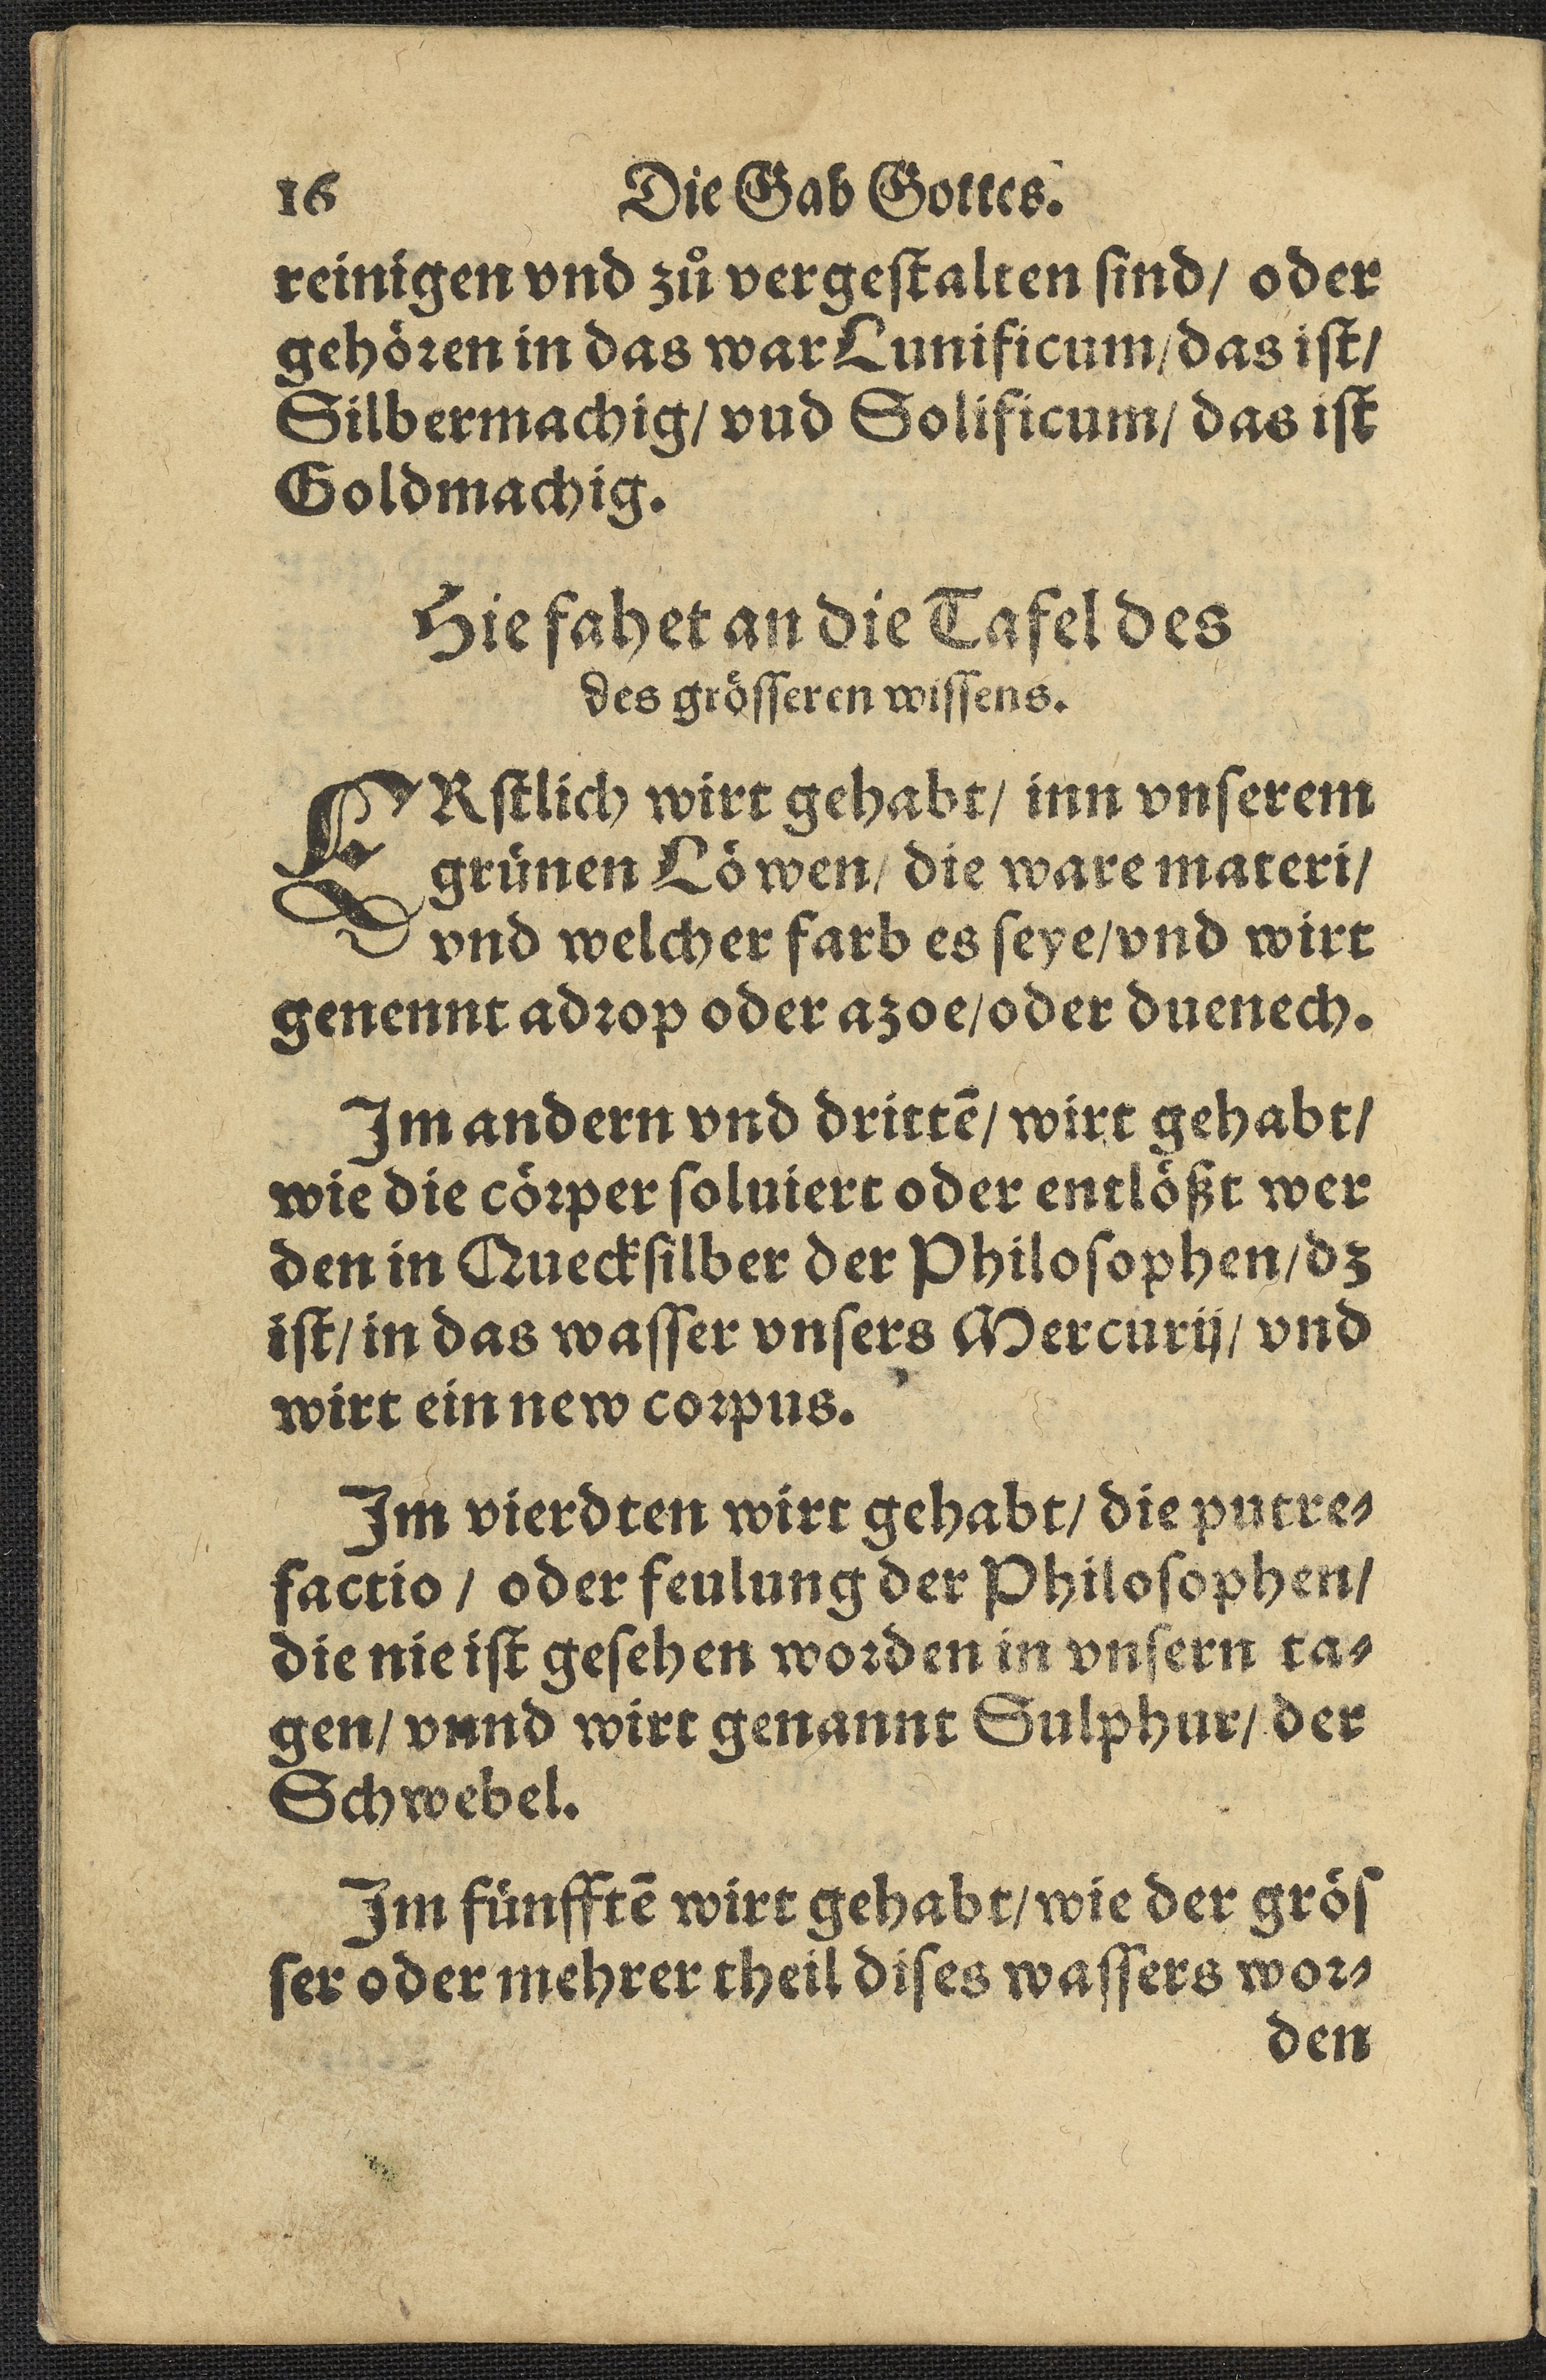 16 Die Gab Gottes.
reinigen vnd zů vergeſtalten ſind/ oder
gehören in das war Lunificum/das iſt/
Silbermachig/ vud Solificum/ das iſt
Goldmachig.
Hie fahet an die Tafel des
des gröſſeren wiſſens.
ERſtlich wirt gehabt/ inn vnſerem
grünen Löwen/ die ware materi/
vnd welcher farb es ſeye/vnd wirt
genennt adꝛop oder azoe/oder duenech.
Im andern vnd drittē/ wirt gehabt/
wie die cöꝛper ſoluiert oder entlößt wer
den in Queckſilber der Philoſophen/dz
iſt/ in das waſſer vnſers Mercurij/ vnd
wirt ein new coꝛpus.
Im vierdten wirt gehabt/ die putre⸗
factio / oder feulung der Philoſophen/
die nie iſt geſehen woꝛden in vnſern ta⸗
gen/ vnnd wirt genannt Sulphur/ der
Schwebel.
Im fünfftē wirt gehabt/wie der gröſ
ſer oder mehrer theil diſes waſſers woꝛ⸗
den